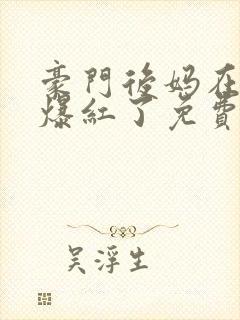 豪門後妈在
爆紅了免費
吴浮生